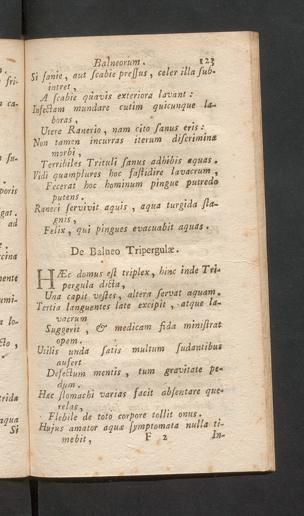 Balneorum. 123
Si sanie, aut scabie pressus, celer illa sub-
intret,
A scabie quavis exteriora lavant:
Infectam mundare cutim quicunque la-
boras,
Utere Ranerio, nam cito sanus eris:
Non tamen incurras iterum discrimina
morbi,
Terribiles Trituli sanus adhibis aquas.
Vidi quamplures hoc fastidire lavacrum,
Fecerat hoc hominum pingue putredo
putens.
Raneri servivit aquis, aqua turgida sta-
gnis,
Felix, qui pingues evacuabit aquas.
De Balneo Tripergulæ.
HÆc domus est triplex, hinc inde Tri-
pergula dicta,
Una capit vestes, altera servat aquam.
Tertia languentes late excipit, atque la-
vacrum
Suggerit, & medicam fida ministrat
opem.
Utilis unda satis multum sudantibus
aufert
Defectum mentis, tum gravitate pe-
dum.
Hæc stomachi varias facit absentare que-
relas,
Flebile de toto corpore tollit onus.
Hujus amator aquæ symptomata nulla ti-
mebit,
F 2 In-